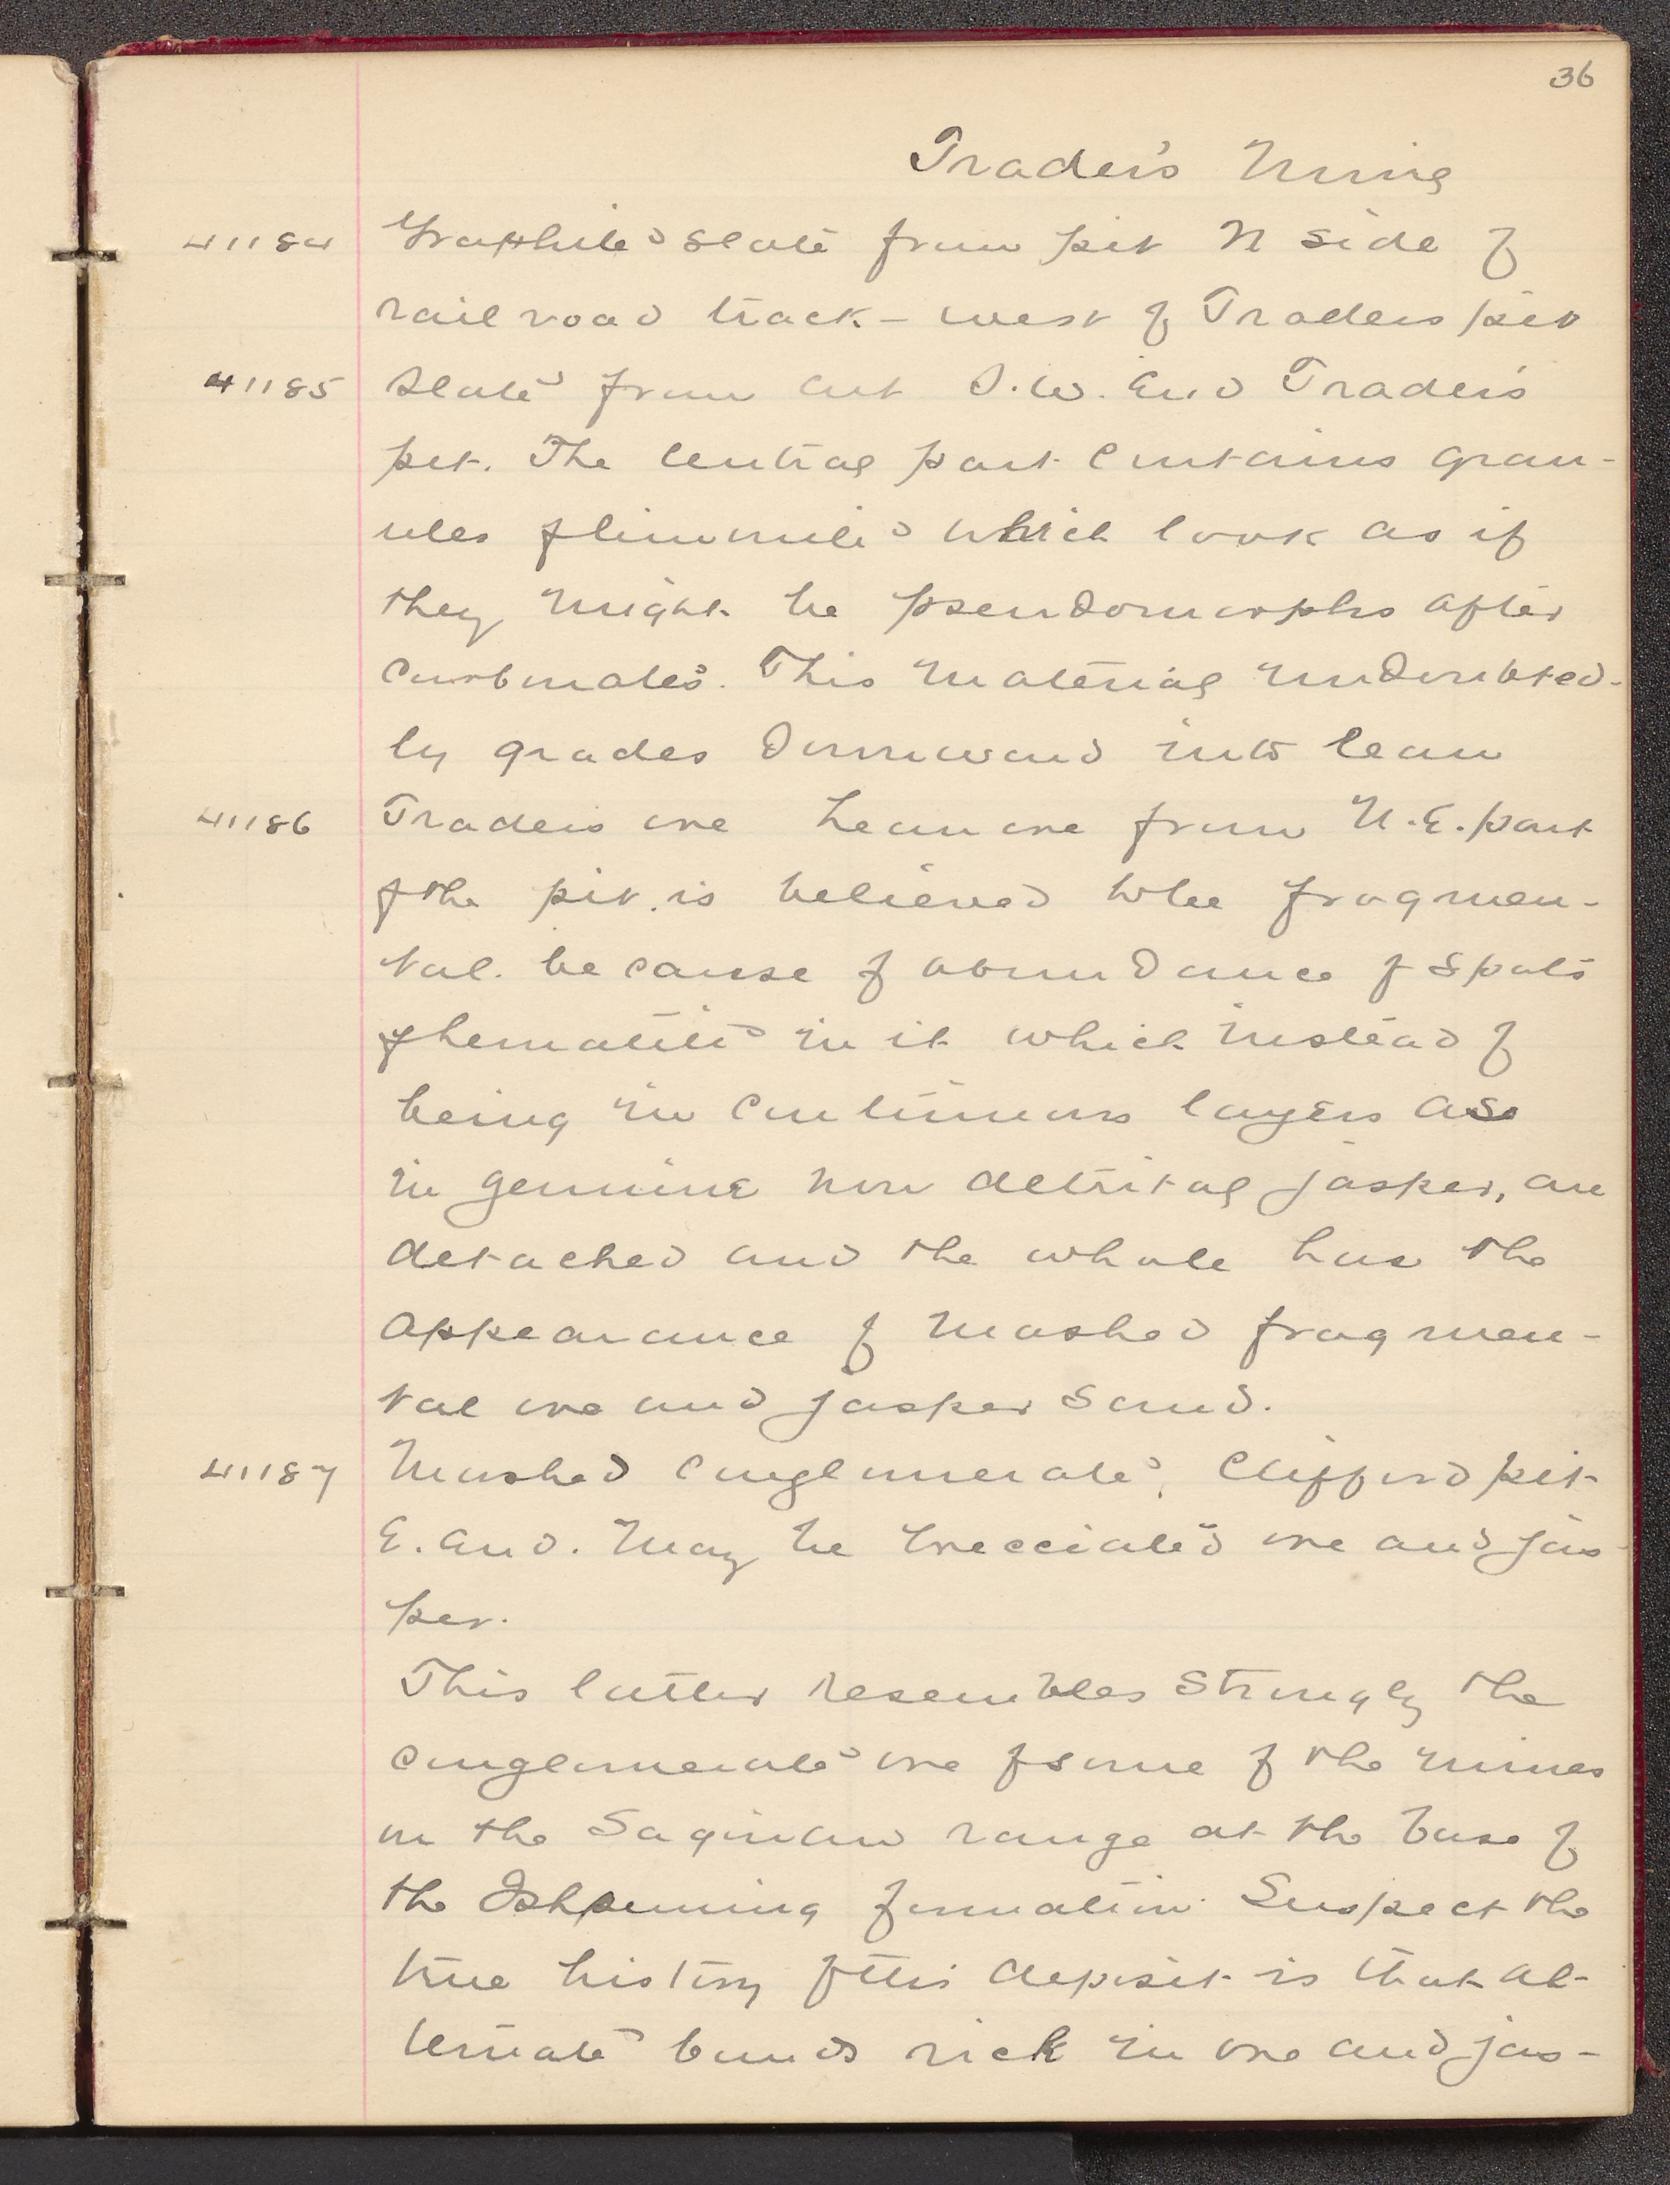 36
Trader's Mine
41184 Graphite slate from pit N side of
railroad track - west of Traders pit
41185 Slate from cut S.W. End Trader's
pit. The central part contains gran-
ules of limonite which look as if
they might be pseudomorphs after
carbonates. This material undoubted-
ly grades downward into lean
41186 Traders ore Lean ore from N.E. part
of the pit. is believed to be fragmen-
tal. because of abundance of spots
of hematite in it which instead of
being in continuous layers as
in genuine non detrital jasper, are
detached and the whole has the
appearance of mashed fragmen-
tal ore and jasper sand.
41187 Mashed conglomerate, Clifford pit
E. End. May be brecciated ore and jas
per.
This latter resembles strongly the
conglomerate ore of some of the mines
on the Saginaw range at the base of
the Ishpeming formation. Suspect the
true history of this deposit is that al-
ternate bands rich in ore and jas-